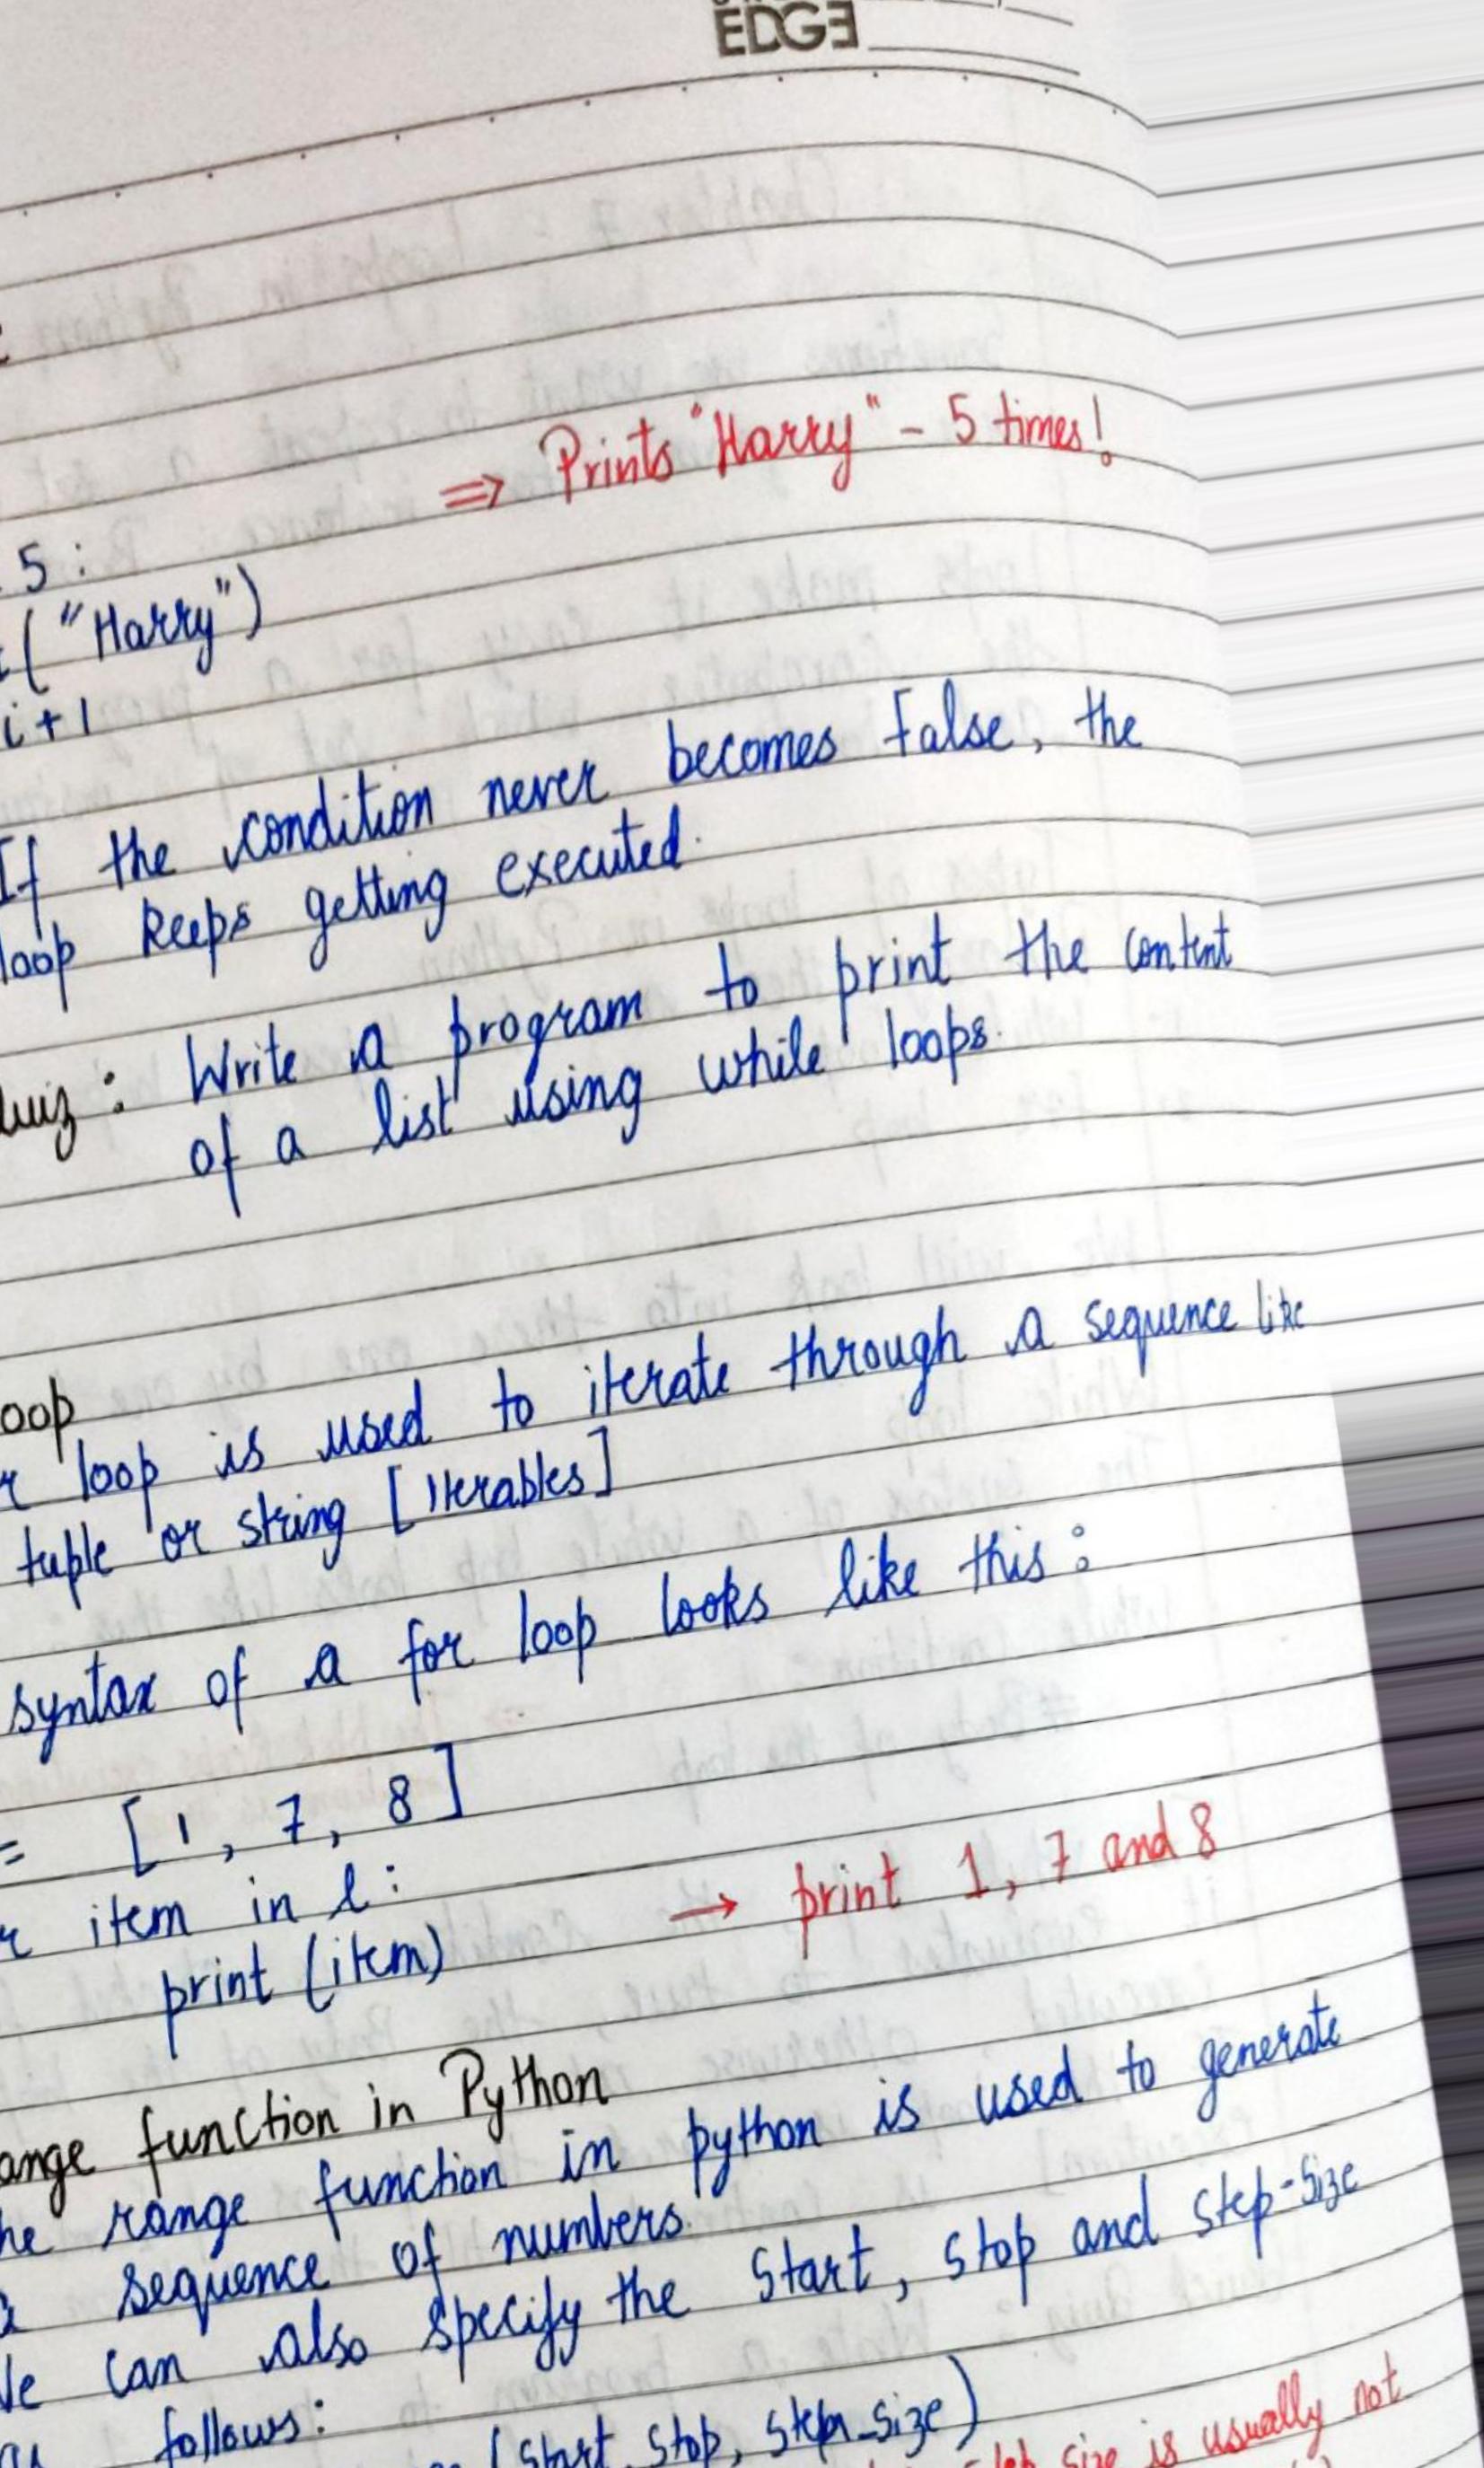 EDGE
⇒ Prints "Harry" - 5 times!
5 :
("Harry")
i + 1
If the condition never becomes False, the
loop keeps getting executed.
: Write a program to print the content
of a list using while loops.
loop is used to iterate through a sequence like
tuple or string [iterables]
syntax of a for loop looks like this :
= [1, 7, 8]
item in l :
print (item) → print 1, 7 and 8
function in Python
range function in python is used to generate
sequence of numbers.
can also specify the start, stop and step-size
follows :
(start, stop, step_size)
size is usually not